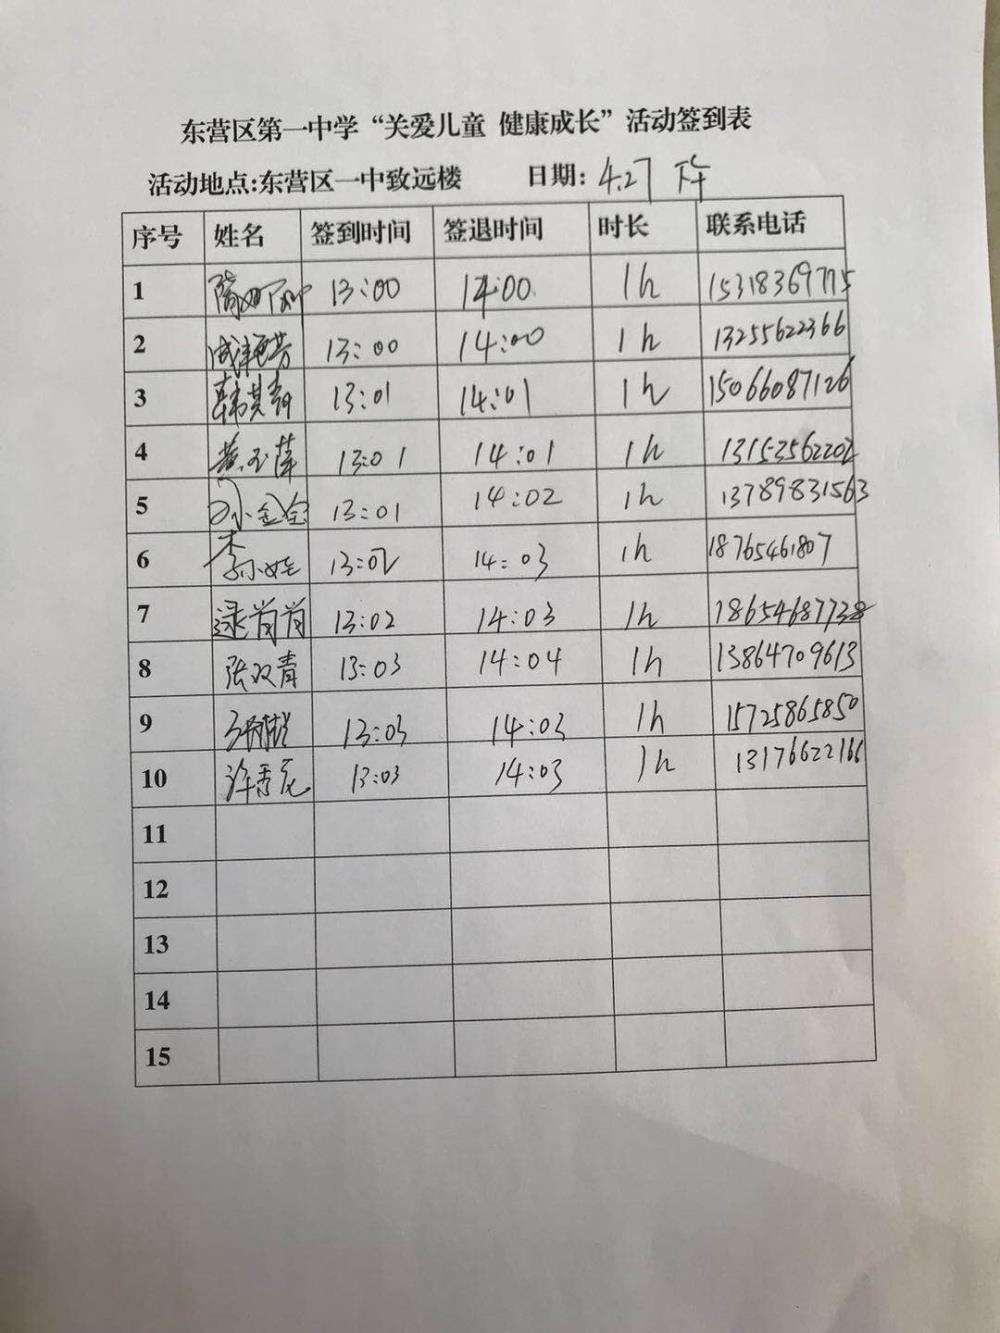 东营区第一中学“关爱儿童 健康成长”活动签到表
活动地点:东营区一中致远楼 日期: 4.27 下午
序号 姓名 签到时间 签退时间 时长 联系电话
1 13:00 14:00 1h 15318369775
2 13:00 14:00 1h 13255622366
3 韩其青 13:01 14:01 1h 15066087126
4 黄玉萍 13:01 14:01 1h 13153562202
5 孙金全 13:01 14:02 1h 13789831563
6 13:02 14:03 1h 18765461807
7 逯肖肖 13:02 14:03 1h 18654687738
8 张双青 13:03 14:04 1h 13864709613
9 13:03 14:03 1h 15725865850
10 13:03 14:03 1h 13176622166
11
12
13
14
15